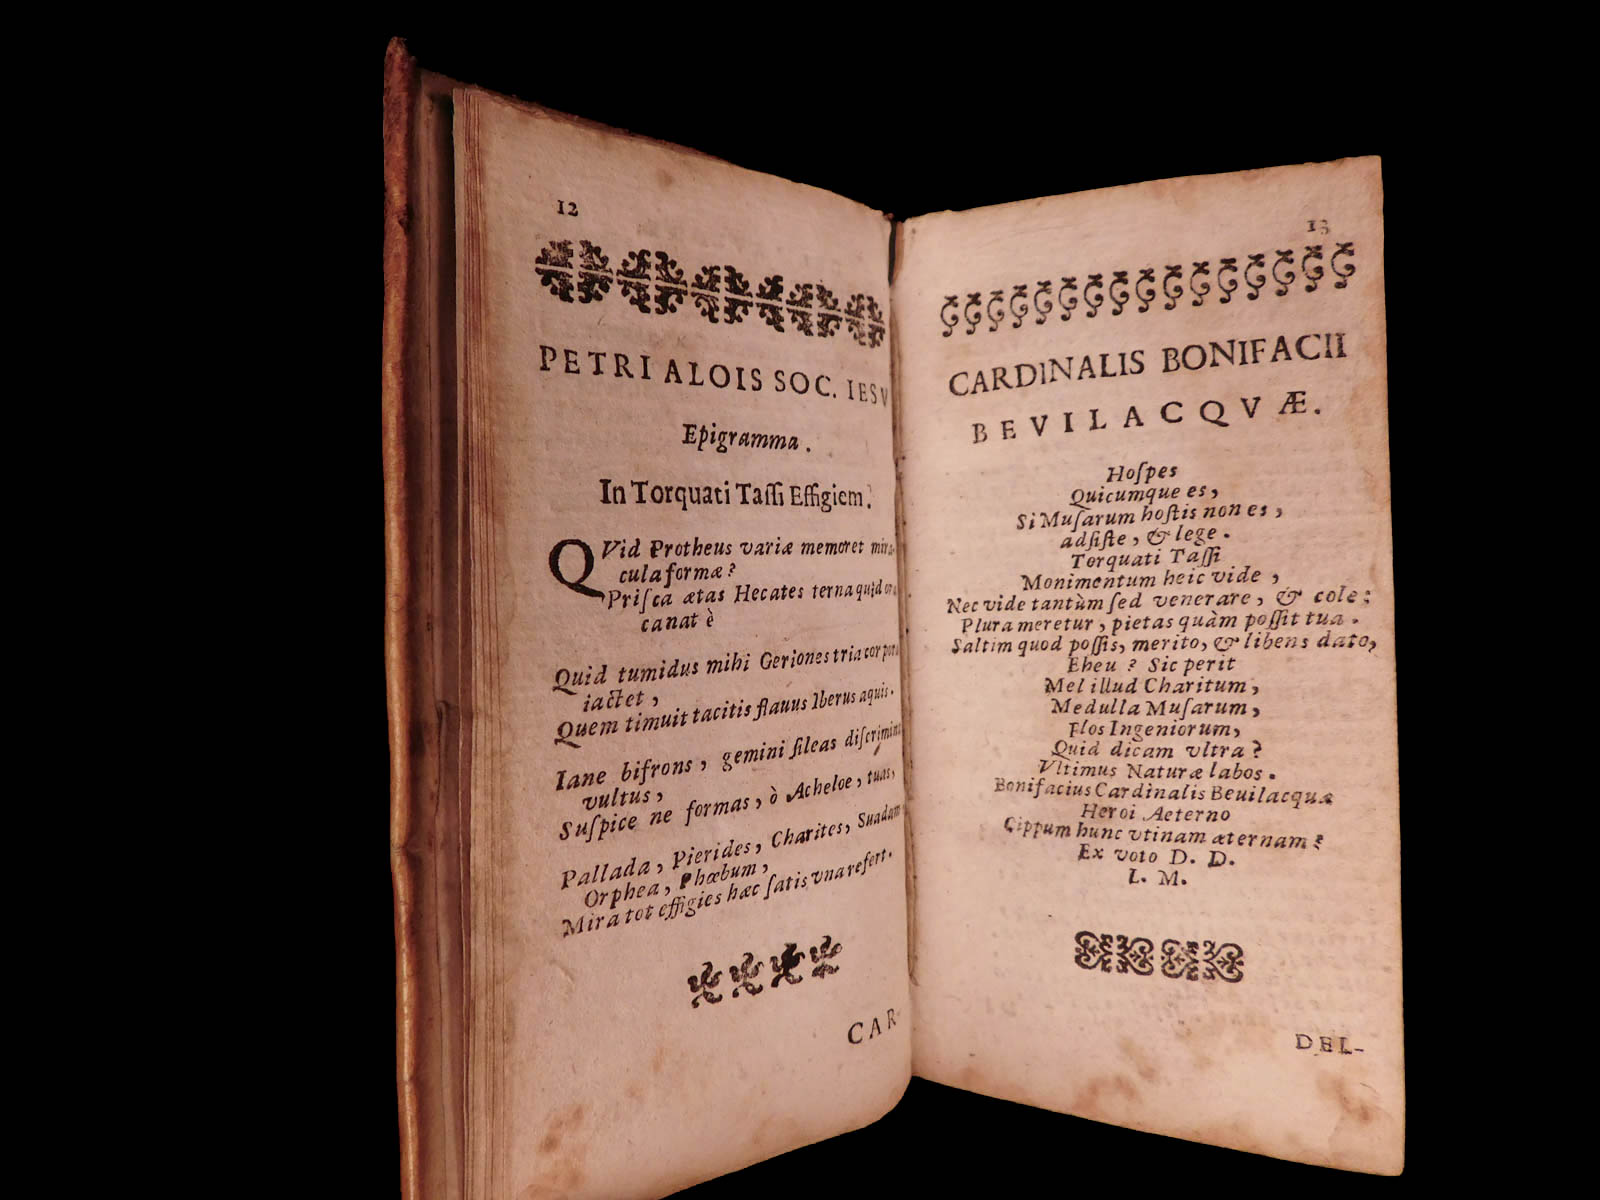 12
PETRI ALOIS SOC. IESV
Epigramma.
In Torquati Taſſi Effigiem.
QVid Protheus variæ memoret mira-
cula formæ?
Priſca ætas Hecates terna quid ora
canat è
Quid tumidus mihi Geriones tria corpora
iactet,
Quem timuit tacitis flauus Iberus aquis.
Iane bifrons, gemini ſileas diſcrimina
vultus,
Suſpice ne formas, ò Acheloe, tuas,
Pallada, Pierides, Charites, Suadam
Orphea, Phœbum,
Mira tot effigies hæc ſatis vna refert.
CAR-
13
CARDINALIS BONIFACII
BEVILACQVÆ.
Hoſpes
Quicumque es,
Si Muſarum hoſtis non es,
adſiſte, & lege.
Torquati Taſſi
Monimentum heic vide,
Nec vide tantùm ſed venerare, & cole:
Plura meretur, pietas quàm poſſit tua.
Saltim quod poſſis, merito, & libens dato,
Eheu? Sic perit
Mel illud Charitum,
Medulla Muſarum,
Flos Ingeniorum,
Quid dicam vltra?
Vltimus Naturæ labos.
Bonifacius Cardinalis Beuilacquæ
Heroi Aeterno
Cippum hunc vtinam æternam?
Ex voto D. D.
L. M.
DEL-